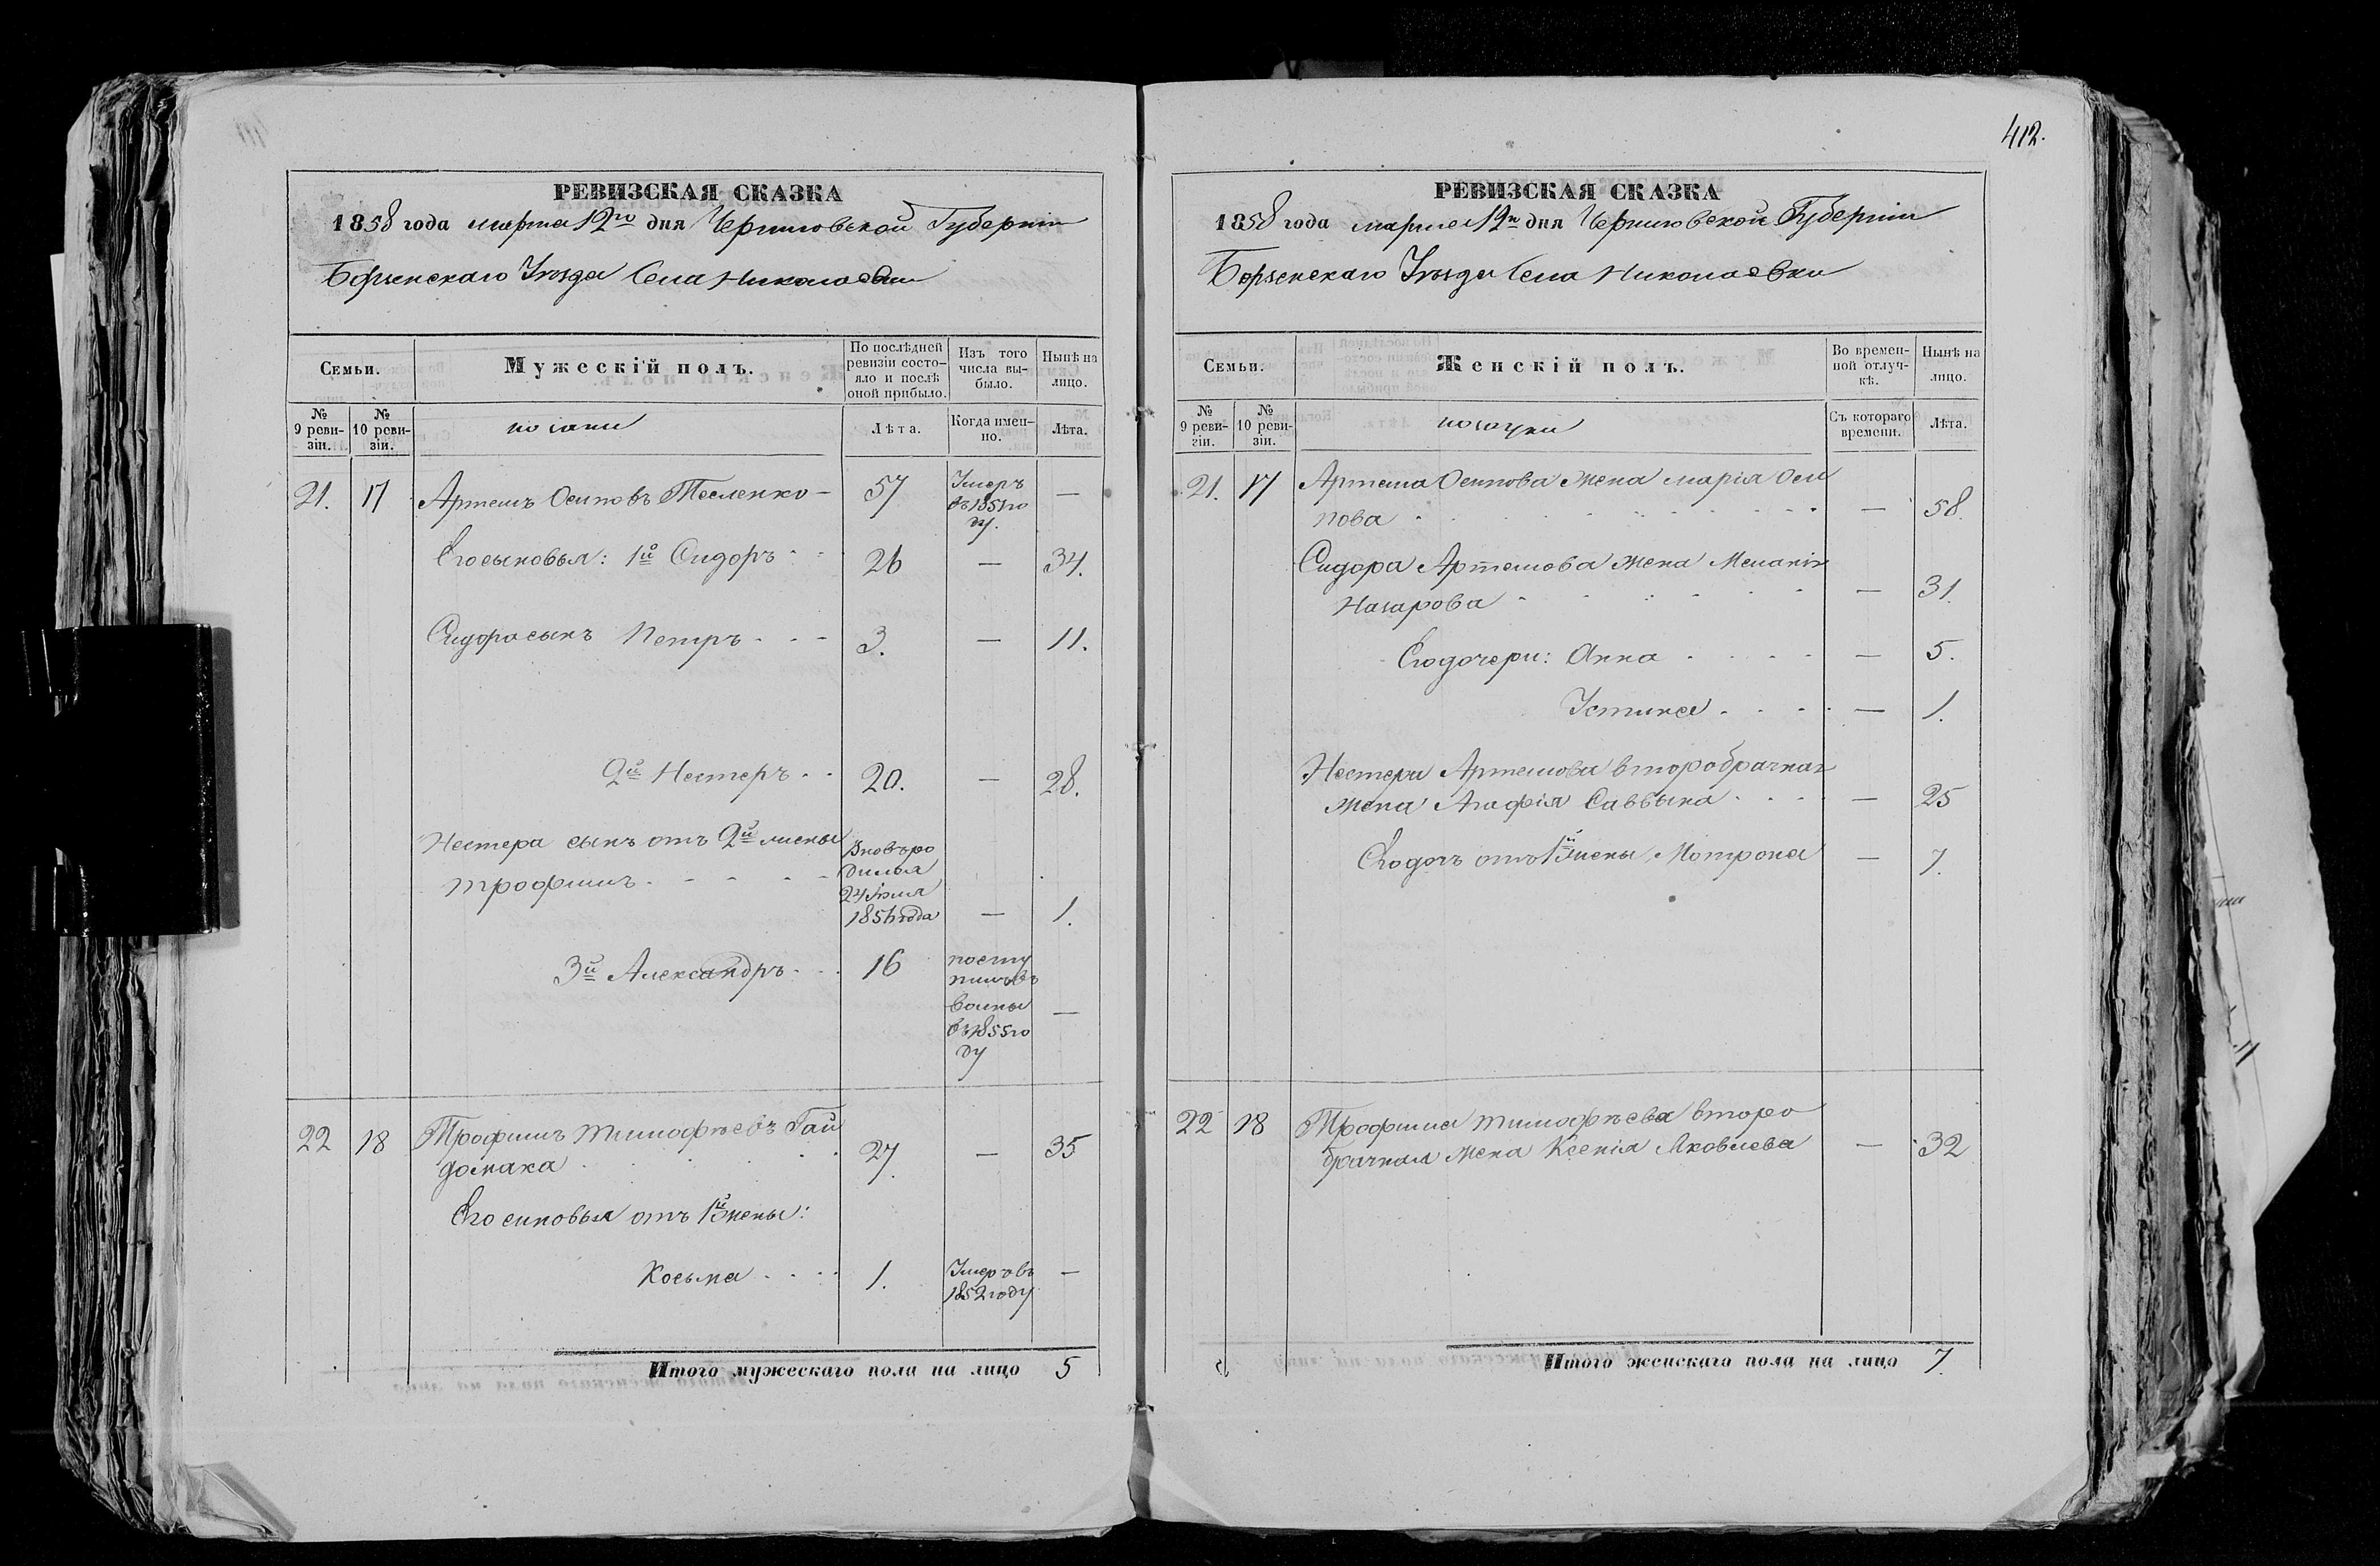 РЕВИЗСКАЯ СКАЗКА
1858 года марта 12го дня Черниговской Губернии
Борзенскаго Уѣзда Села Николаевки
Семьи.
Мужескій полъ.
По послѣдней ревизіи состо-
яло и послѣ
оной прибыло.
Изъ того
числа вы-
было.
Нынѣ на
лицо.
№
9 реви-
зіи.
№
10 реви-
зіи.
козаки
Лѣта.
Когда имен-
но.
Лѣта.
21. 17 Артемъ Осиповъ Тесленко - 57 Умеръ —
въ 1851 го
ду.
Его сыновья: 1й Сидоръ 26 — 34.
Сидора сынъ Петръ 3. — 11.
2й Нестеръ 20. — 28.
Нестера сынъ отъ 2й жены Вновь ро
Трофимъ дился
24 Июля
1856 года — 1.
3й Александръ 16 посту
пилъ въ
воины —
въ 1855 го
ду
22 18 Трофимъ Тимофѣевъ Гай 27. — 35
домака
Его синовья отъ 1й жены:
Косьма 1. Умеръ въ —
1852 году
Итого мужескаго пола на лицо 5
412.
РЕВИЗСКАЯ СКАЗКА
1858 года марта 12го дня Черниговской Губернии
Борзенскаго Уѣзда Села Николаевки
Семьи.
Женскій полъ.
Во времен-
ной отлуч-
кѣ.
Нынѣ на
лицо.
№
9 реви-
зіи.
№
10 реви-
зіи.
козачки
Съ котораго
времени.
Лѣта.
21. 17 Артема Осипова жена Марія Оси
пова — 58.
Сидора Артемова жена Меланія
Назарова — 31.
Его дочери: Анна — 5.
Устина — 1.
Нестера Артемова второбрачная
жена Агафія Саввына — 25
Его дочь отъ 1й жены Мотрона — 7.
22 18 Трофима Тимофѣева второ
брачная жена Ксенія Яковлева — 32
Итого женскаго пола на лицо 7.